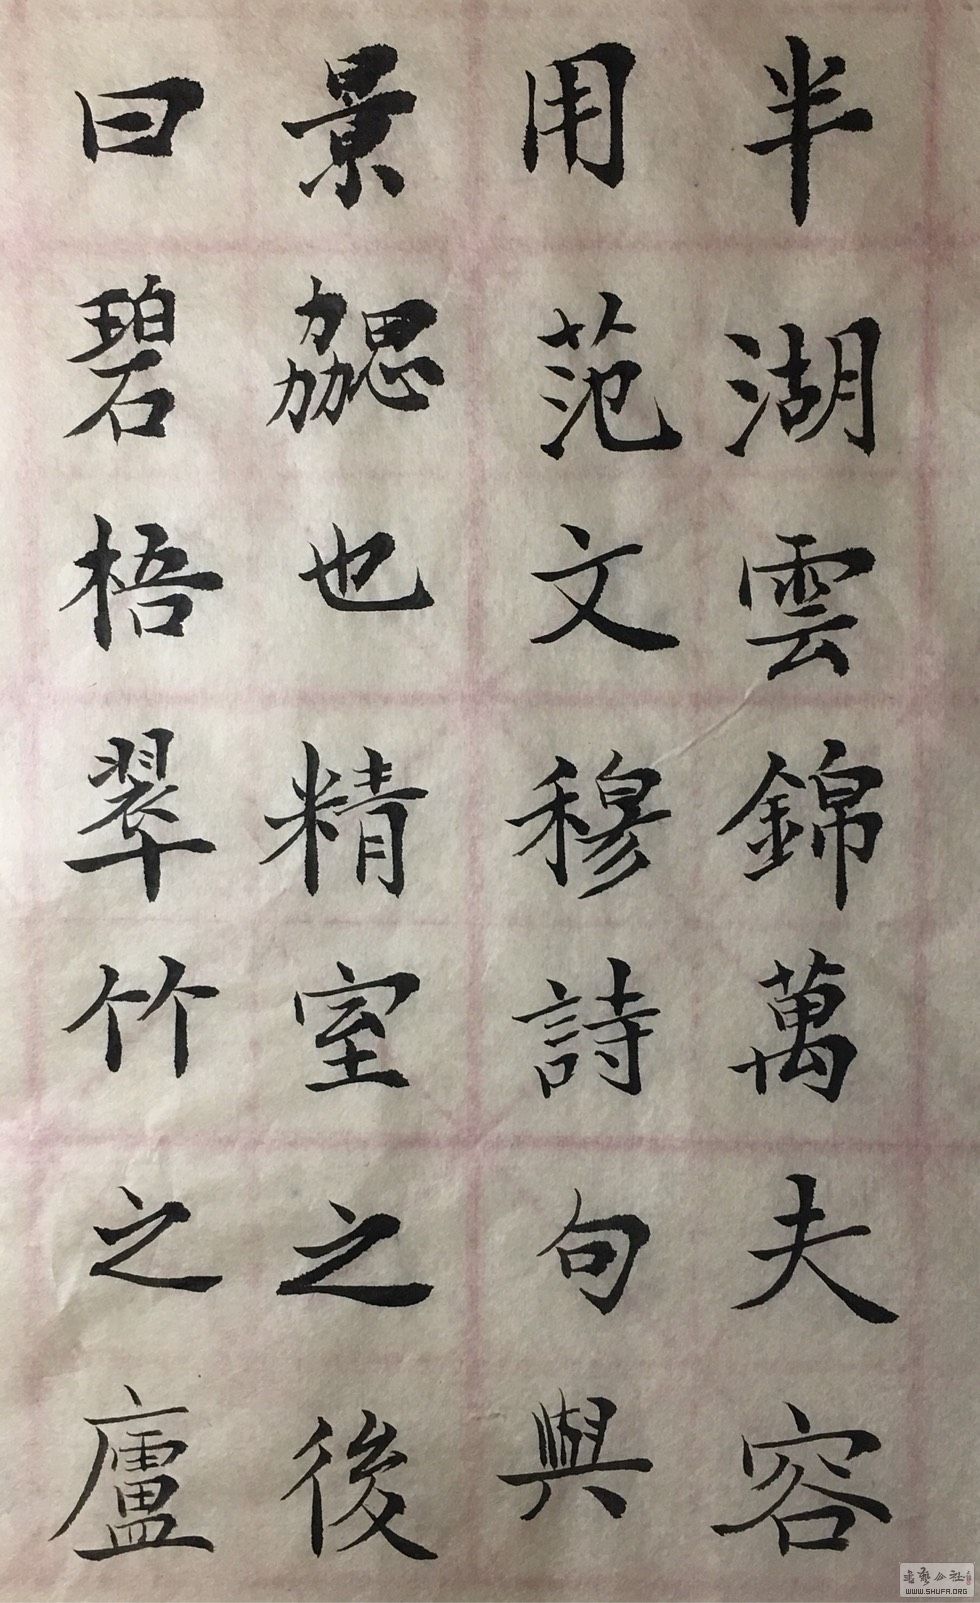 半湖雲錦萬夫容
用范文穆詩句與
景勰也精室之後
曰碧梧翠竹之廬
WWW.SHUFA.ORG